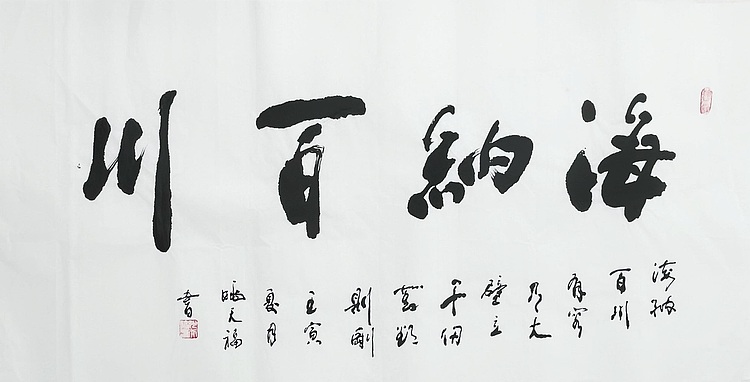 海納百川
海納
百川
有容
乃大
壁立
千仞
無欲
則剛
壬寅
夏月
元福
書